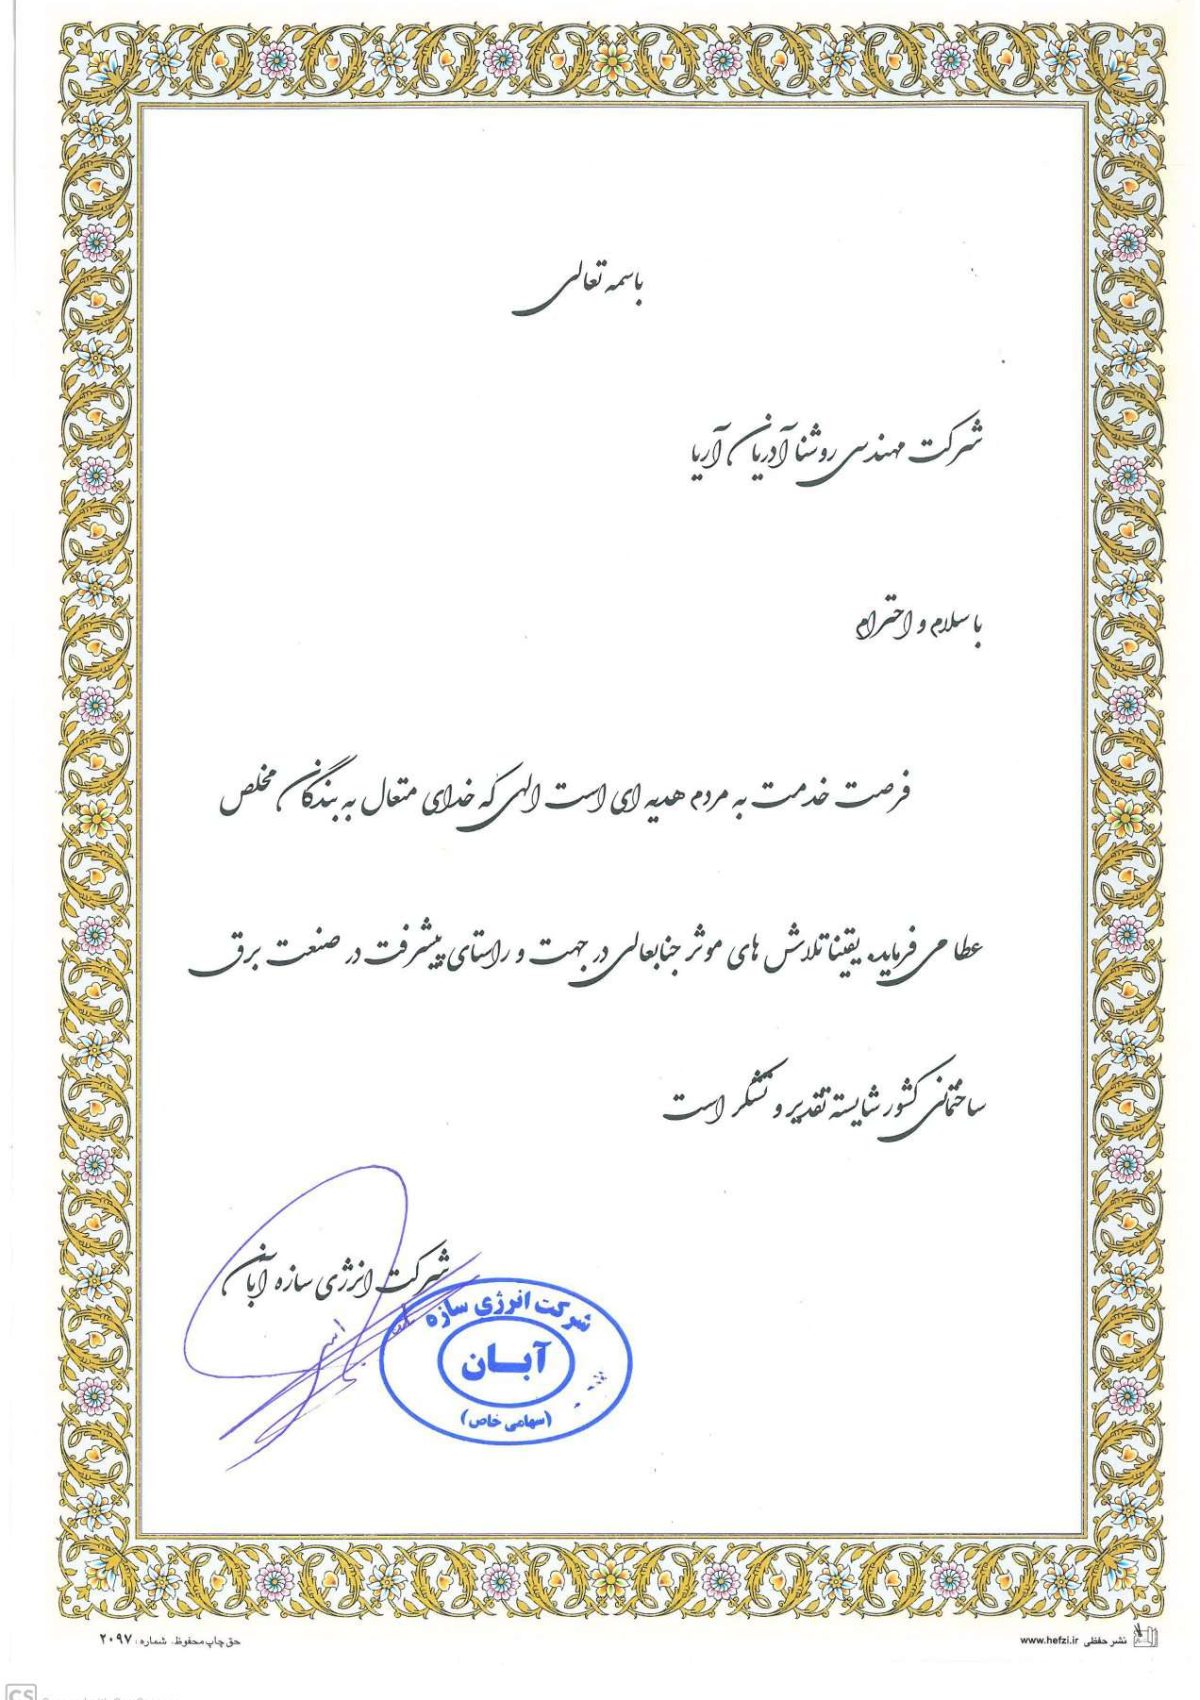 باسمه تعالی
شرکت مهندسی روشنا آدریان آریا
با سلام و احترام
فرصت خدمت به مردم هدیه ای است الهی که خدای متعال به بندگان مخلص
عطا می فرماید. یقینا تلاش های موثر جنابعالی در جهت و راستای پیشرفت در صنعت برق
ساختمانی کشور شایسته تقدیر و تشکر است
شرکت انرژی سازه آبان
شرکت انرژی سازه
آبـان
(سهامی خاص)
نشر حفظی www.hefzi.ir
حق چاپ محفوظ. شماره: ۲۰۹۷
CS